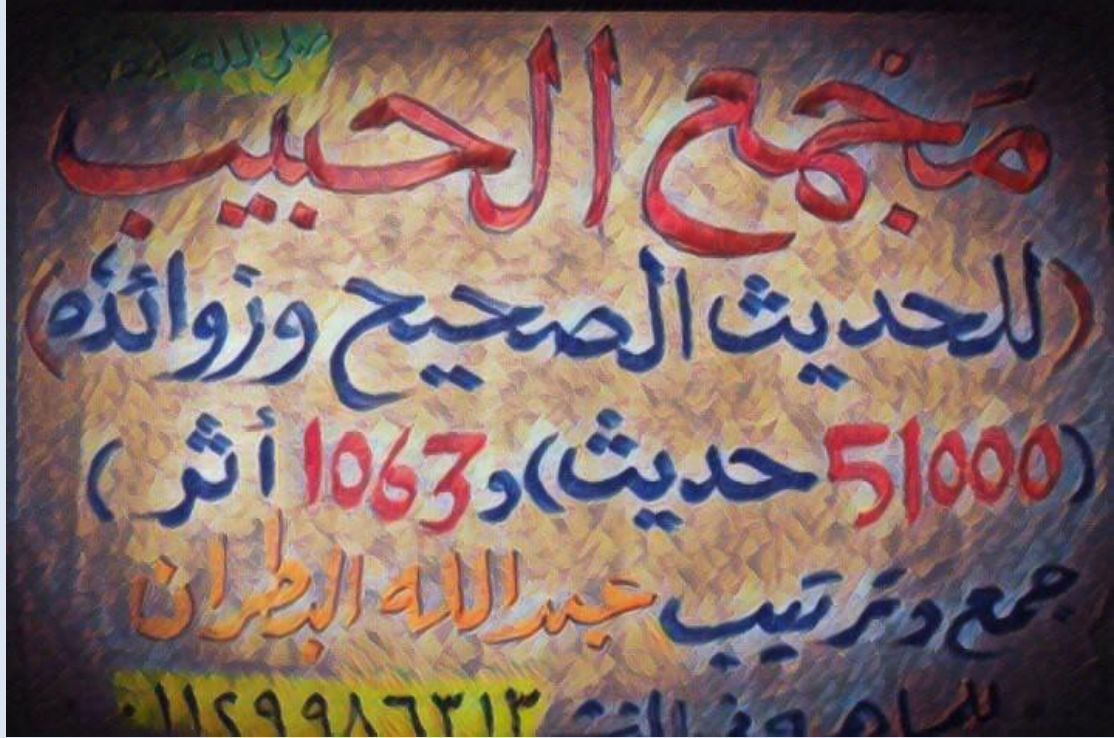 صلى الله عليه وسلم
مَجْمع الحبيب
(للحديث الصحيح وزوائده)
(51000 حديث) و1063 أثر)
جمع وترتيب عبدالله البطران
٠١١٢٩٩٨٦٣١٣